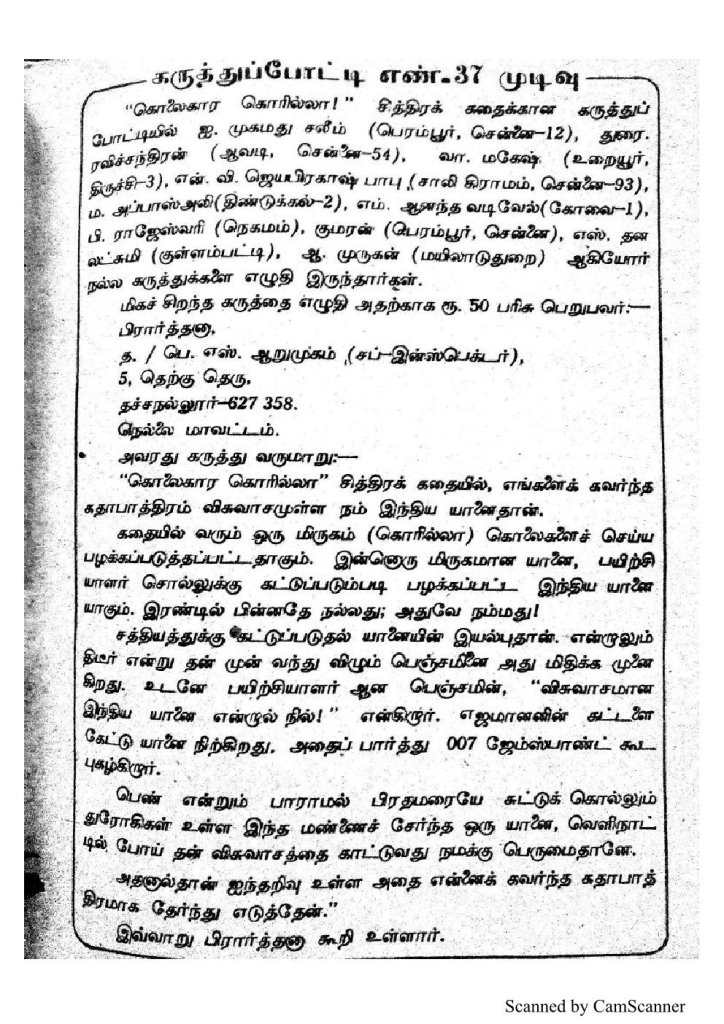 கருத்துப்போட்டி எண்.37 முடிவு
"கொலைகார கொரில்லா!" சித்திரக் கதைக்கான கருத்துப்
போட்டியில் ஐ. முகமது சலீம் (பெரம்பூர், சென்னை–12), துரை.
ரவிச்சந்திரன் (ஆவடி, சென்னை–54), வா. மகேஷ் (உறையூர்,
திருச்சி–3), என். வி. ஜெயபிரகாஷ் பாபு (சாலி கிராமம், சென்னை–93),
ம. அப்பாஸ்அலி(திண்டுக்கல்–2), எம். ஆனந்த வடிவேல்(கோவை–1),
பி. ராஜேஸ்வரி (நெகமம்), குமரன் (பெரம்பூர், சென்னை), எஸ். தன
லட்சுமி (குள்ளம்பட்டி), ஆ. முருகன் (மயிலாடுதுறை) ஆகியோர்
நல்ல கருத்துக்களை எழுதி இருந்தார்கள்.
மிகச் சிறந்த கருத்தை எழுதி அதற்காக ரூ. 50 பரிசு பெறுபவர்:—
பிரார்த்தனா,
த. / பெ. எஸ். ஆறுமுகம் (சப்–இன்ஸ்பெக்டர்),
5, தெற்கு தெரு,
தச்சநல்லூர்–627 358.
நெல்லை மாவட்டம்.
அவரது கருத்து வருமாறு:—
"கொலைகார கொரில்லா" சித்திரக் கதையில், எங்களைக் கவர்ந்த
கதாபாத்திரம் விசுவாசமுள்ள நம் இந்திய யானைதான்.
கதையில் வரும் ஒரு மிருகம் (கொரில்லா) கொலைகளைச் செய்ய
பழக்கப்படுத்தப்பட்டதாகும். இன்னொரு மிருகமான யானை, பயிற்சி
யாளர் சொல்லுக்கு கட்டுப்படும்படி பழக்கப்பட்ட இந்திய யானை
யாகும். இரண்டில் பின்னதே நல்லது; அதுவே நம்மது!
சத்தியத்துக்கு கட்டுப்படுதல் யானையின் இயல்புதான். என்றாலும்
திடீர் என்று தன் முன் வந்து விழும் பெஞ்சமினை அது மிதிக்க முனை
கிறது. உடனே பயிற்சியாளர் ஆன பெஞ்சமின், "விசுவாசமான
இந்திய யானை என்றால் நில்!" என்கிறார். எஜமானனின் கட்டளை
கேட்டு யானை நிற்கிறது. அதைப் பார்த்து 007 ஜேம்ஸ்பாண்ட் கூட
புகழ்கிறார்.
பெண் என்றும் பாராமல் பிரதமரையே சுட்டுக் கொல்லும்
துரோகிகள் உள்ள இந்த மண்ணைச் சேர்ந்த ஒரு யானை, வெளிநாட்
டில் போய் தன் விசுவாசத்தை காட்டுவது நமக்கு பெருமைதானே.
அதனால்தான் ஐந்தறிவு உள்ள அதை என்னைக் கவர்ந்த கதாபாத்
திரமாக தேர்ந்து எடுத்தேன்."
இவ்வாறு பிரார்த்தனா கூறி உள்ளார்.
Scanned by CamScanner